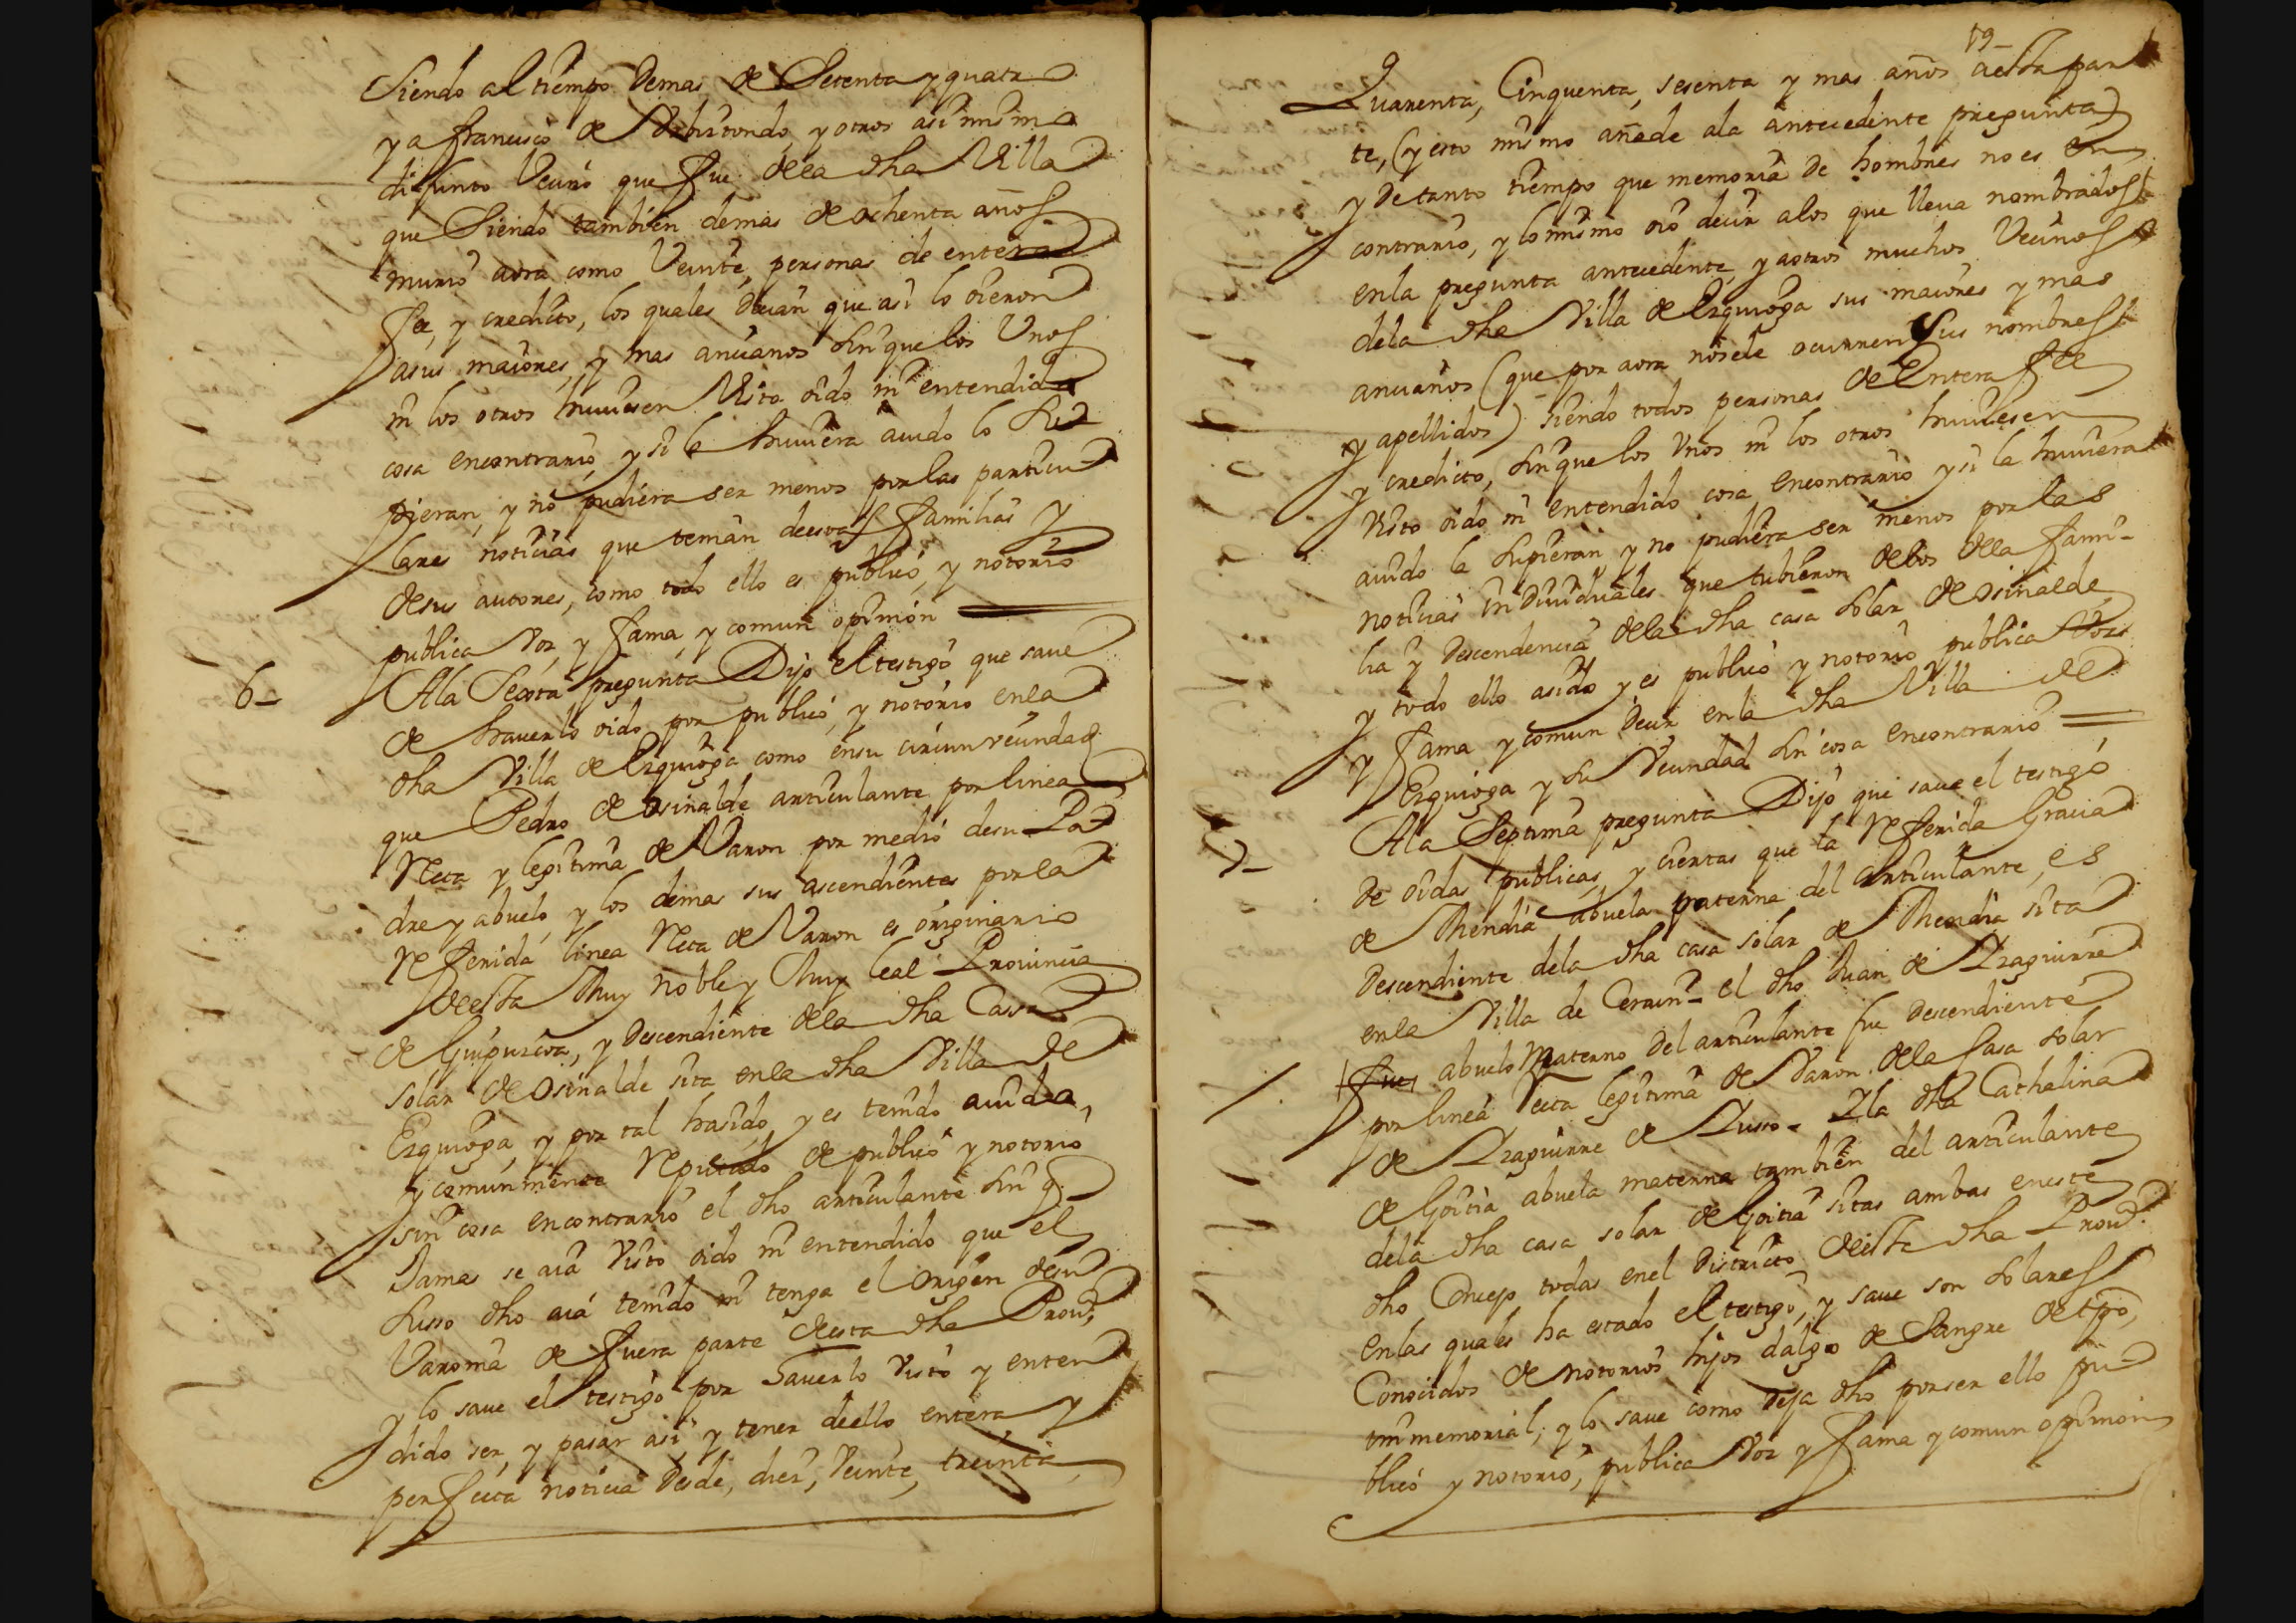 Siendo al tiempo demas de Setenta y quatro
y a francisco de Urbiztondo, y otros asi mismo
difunto Vecino que fue dela dha Villa
que Siendo tambien demas de ochenta años
murio aora como Veinte, personas de entera
fee, y credicto, los quales decian que asi lo oieron
asus maiores, y mas ancianos sin que los Unos
ni los otros huuiesen Visto oido ni entendido
cosa encontrario, y si la huuiera auido lo su
pieran, y no pudiera ser menos por las particu
lares noticias que tenian de estas familias y
de sus autores, como todo ello es publico, y notorio
publica Voz, y fama, y comun opinion
6_
Ala Sexta pregunta Dijo el testigo que saue
de hauerlo oido por publico, y notorio enla
dha Villa de Ezquioga como ensu circunvecindad
que Pedro de Osinalde articulante por linea
Recta y legitima de Varon por medio de su Pa
dre y abuelo, y los demas sus ascendientes por la
Referida linea Recta de Varon es originario
de esta Muy noble y Muy leal Prouincia
de Guipuzcoa, y Descendiente dela dha Cassa
solar de Osinalde sita enla dha Villa de
Ezquioga, y por tal hasido, y es tenido auida,
y comunmente Reputado de publico y notorio
sin cosa encontrario el dho articulante sin q.
Jamas se aia Visto oido ni entendido que el
susso dho aia tenido ni tenga el origen de su
Varonia de fuera parte de esta dha Prou.ª
y lo saue el testigo por hauerlo Visto y enten
dido ser, y pasar asi, y tener de ello entera, y
perfecta noticia Desde, diez, Veinte, treinta,
19_
Quarenta, Cinquenta, sesenta y mas años aesta par
te, (y esto mismo añede ala antecedente pregunta)
y de tanto tiempo que memoria de hombres no es en
contrario, y lo mismo oio decir alos que lleua nombrados
enla pregunta antecedente, y aotros muchos Vecinos
dela dha Villa de Ezquioga sus maiores y mas
ancianos (que por aora nosele ocurren sus nombres
y apellidos) siendo todos personas de Entera fee
y credicto, sin que los Unos ni los otros huuiesen
Visto oido ni entendido cosa encontrario y si la huuiera
auido la supieran, y no pudiera ser menos por las
noticias indiuiduales que tubieron de los dela fami-
lia y Descendencia dela dha casa solar de Osinalde,
y todo ello asido y es publico y notorio publica Voz
y fama y comun decir enla dha Villa de
Ezquioga y su Vecindad sin cosa encontrario
7_
Ala Septima pregunta Dijo que saue el testigo
de oidas publicas, y ciertas que la Referida Gracia
de Mendia abuela paterna del articulante, es
Descendiente dela dha casa solar de Mendia sita
enla Villa de Cerain_ el dho Juan de Yzaguirre
fue abuelo Materno del articulante fue Descendiente
por linea Recta legitima de Varon dela Casa solar
de Yzaguirre de Ysaso_ Y la dha Cathalina
de Goitia abuela materna tambien del articulante
dela dha casa solar de Goitia sitas ambas en este
dho Concejo todas enel Districto de esta dha Prou.ª
enlas quales ha estado el testigo, y saue son solares
Conocidos de notorios hijos dalgo de Sangre de tpo,
inmemorial; y lo saue como deja dho por ser ello pu
blico y notorio, publica Voz y fama y comun opinion